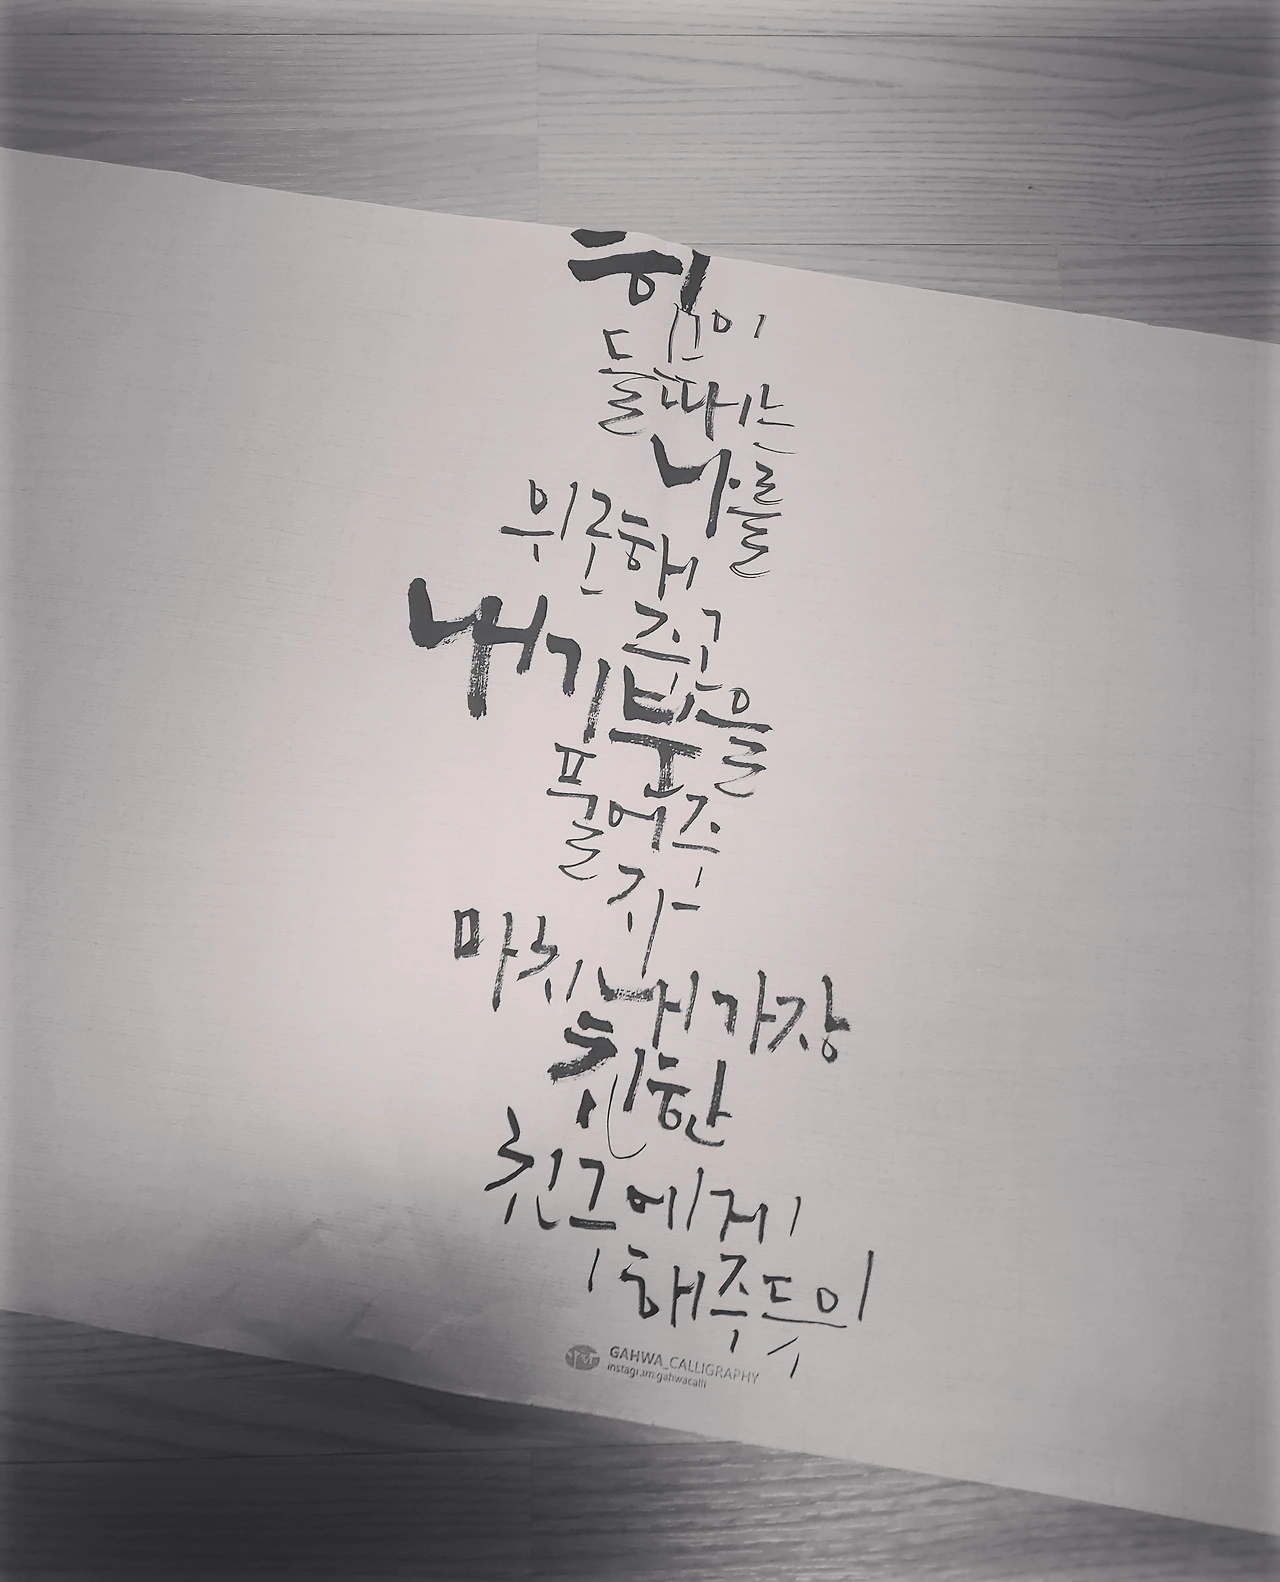 힘이
들때는
나를
위로해
주고
내기분을
풀어주
자
마치 내 가장
친한
친구에게
해주듯이
GAHWA_CALLIGRAPHY
instagram:gahwacalli